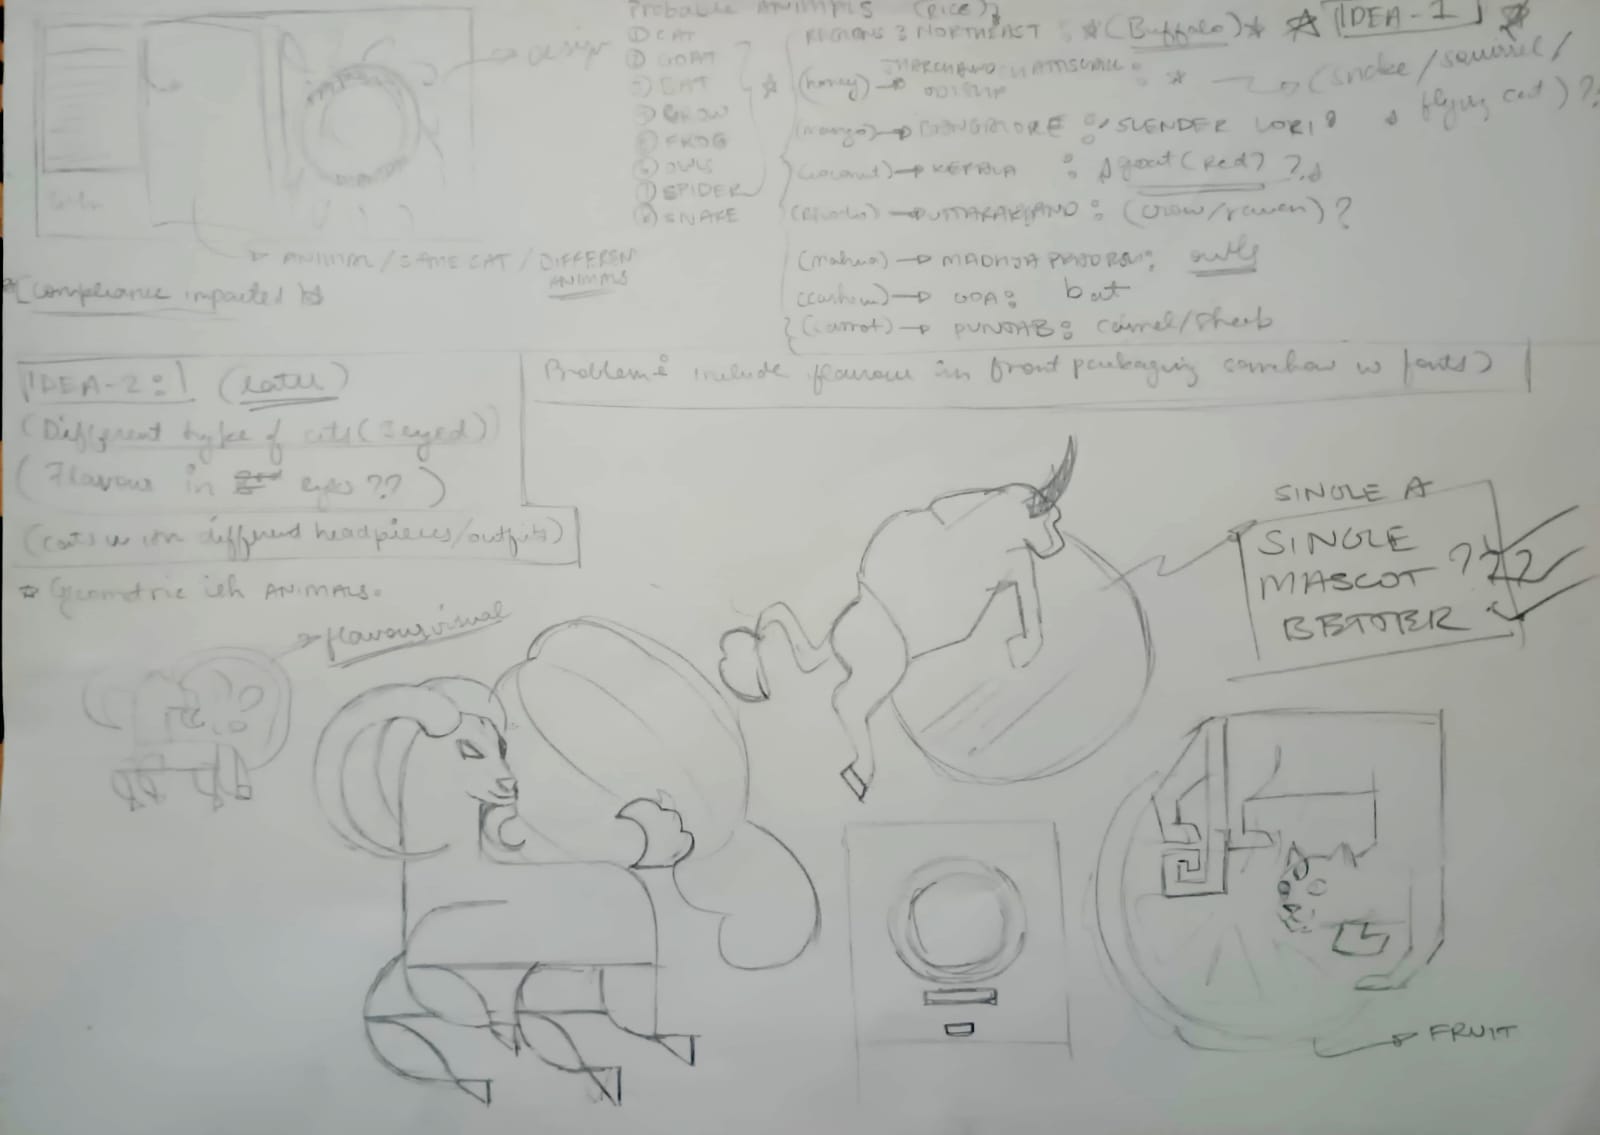 Probable ANIMALS (Rice)
① CAT
② GOAT
③ BAT
④ CROW
⑤ FROG
⑥ OWLS
⑦ SPIDER
⑧ SNAKE
REGIONS : NORTHEAST : (Buffalo) IDEA-1
(honey) → : (snake/squirrel/
flying cat) ??
(mango) → BANGALORE : SLENDER LORI?
(coconut) → KERALA : goat (Red? ?
→ UTTARAKHAND : (crow/raven) ?
(mahua) → MADHYA : owls
→ GOA : bat
(carrot) → PUNJAB : camel/sheeb
design
ANIMAL / SAME CAT / DIFFEREN
ANIMALS
Compliance impacted
IDEA-2 : (later)
(Different type of cats (3 eyed))
(Flavour in eyes ??)
(cats w different headpieces/outfits)
Problem : include flavour in front packaging somehow w fonts)
Geometric ish ANIMALS.
flavour visual
SINGLE A
SINGLE
MASCOT ???
BETTER
FRUIT